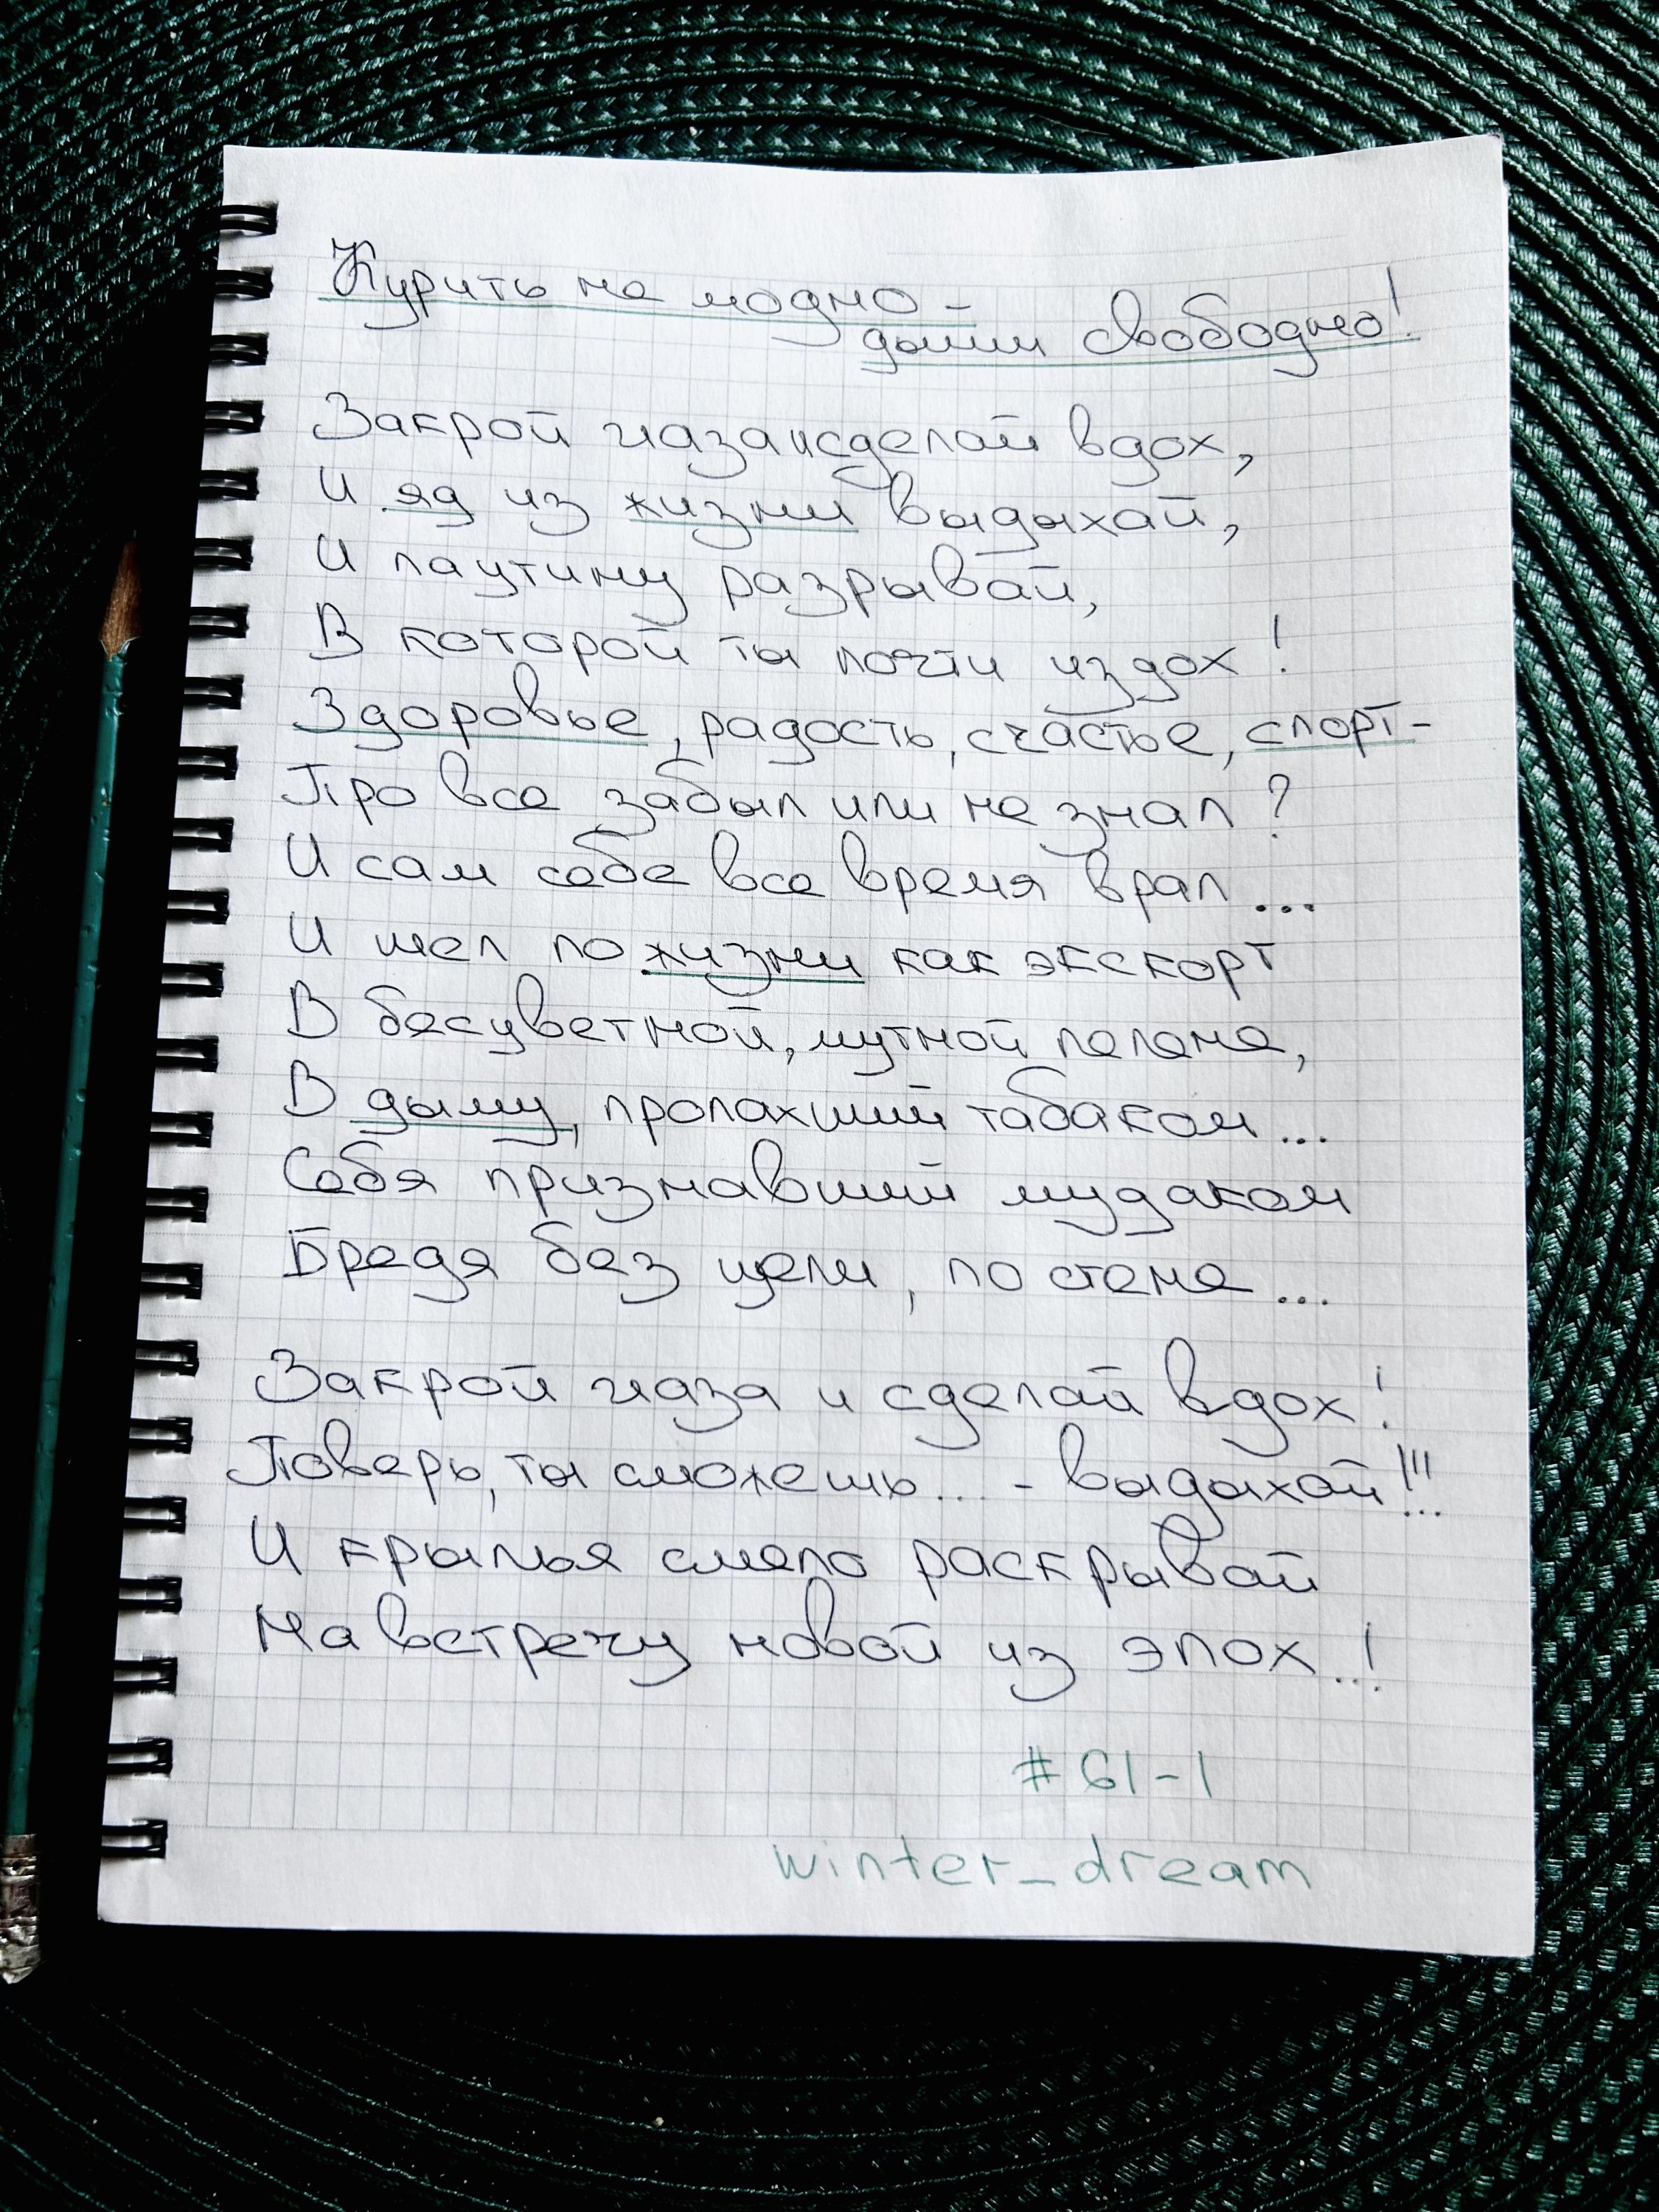 Курить не модно -
дыши свободно!
Закрой глаза и сделай вдох,
И яд из жизни выдыхай,
И паутину разрывай,
В которой ты почти издох!
Здоровье, радость, счастье, спорт-
Про все забыл или не знал?
И сам себе все время врал...
И шел по жизни как экскорт
В бесцветной, мутной пелене,
В дыму, пропахший табаком...
Себя признавший мудаком
Бредя без цели, по стене...
Закрой глаза и сделай вдох!
Поверь, ты сможешь... - выдыхай!!!
И крылья смело раскрывай
На встречу новой из эпох..!
#61-1
winter_dream